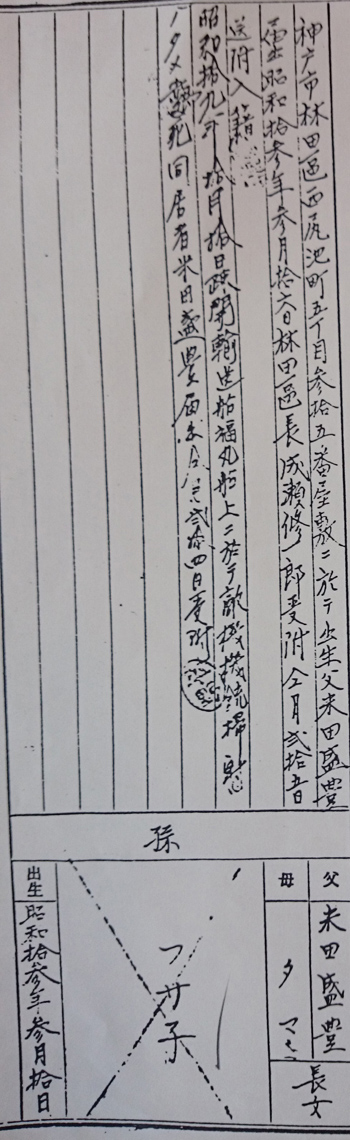 神戸市林田區西尻池町五丁目参拾五番屋敷ニ於テ出生父米田盛豊
届出昭和拾参年参月拾六日林田區長成瀬修一郎受附仝月弐拾五日
送附入籍
昭和拾九年拾月拾日疎開輸送拾福丸船上ニ於テ敵機機銃掃射
ノタメ戰死同居者米田盛豊届出仝月弐拾四日受附
孫
父
米田盛豊
母
タマ
長女
フサ子
出生
昭和拾参年参月拾日